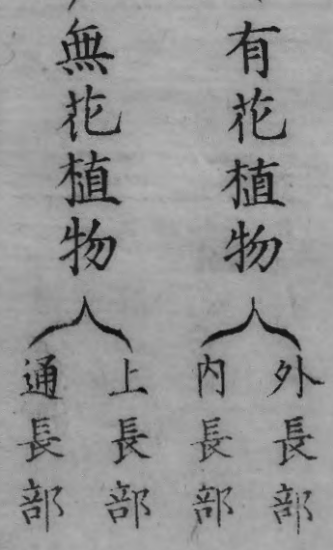 有花植物
外長部
內長部
無花植物
上長部
通長部